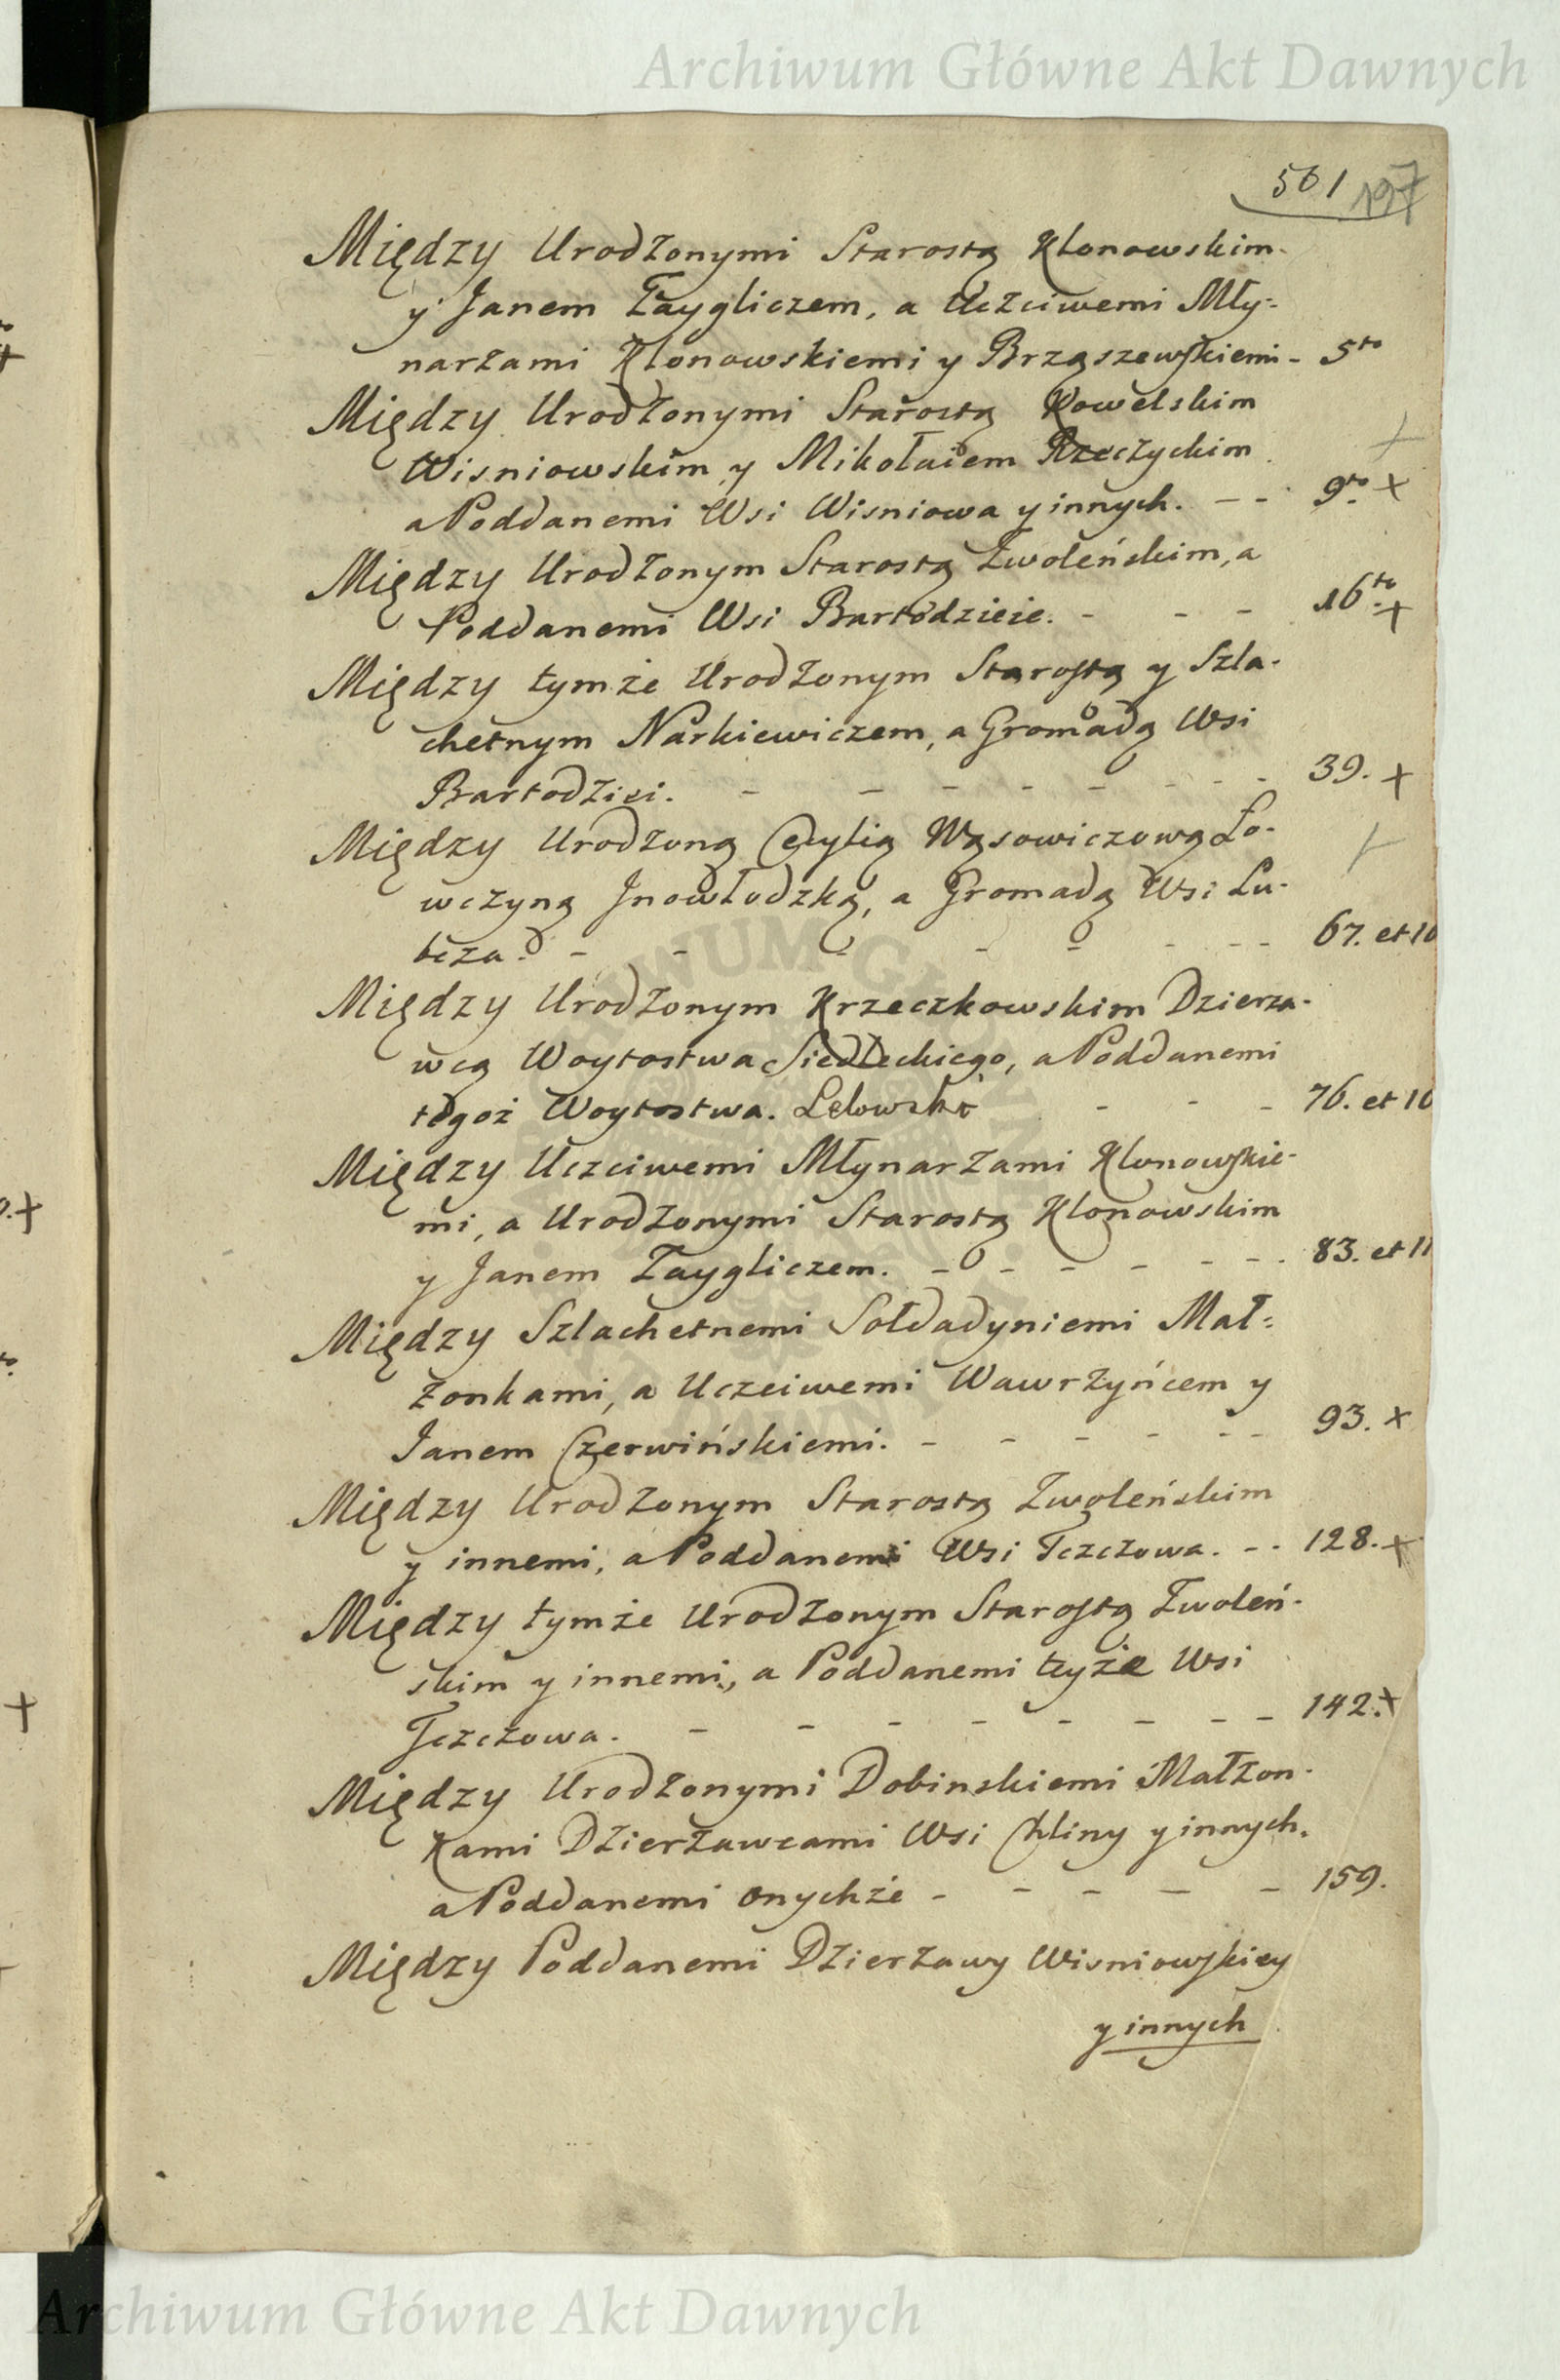 Archiwum Główne Akt Dawnych
501 197
Między Urodzonymi Starostą Klonowskim
y Janem Taygliczem, a Uczciwemi Mły-
narzami Klonowskiemi y Brząszewskiemi - 5to
Między Urodzonymi Starostą Kowelskim
Wisniowskim y Mikołaiem Rzeczyckim
a Poddanemi Wsi Wisniowa y innych. - - 9no. +
Między Urodzonym Starostą Zwoleńskim, a
Poddanemi Wsi Bartodzieie. - - - 16to. +
Między tymże Urodzonym Starostą y Szla-
chetnym Narkiewiczem, a Gromadą Wsi
Bartodziei. - - - - - - - - 39. +
Między Urodzoną Cecylią Wąsowiczową Ło-
wczyną Inowłodzką, a Gromadą Wsi Lu-
bcza. - - - - - - - - 67. et 10
Między Urodzonym Krzeczkowskim Dzierza-
wcą Woytostwa Siedleckiego, a Poddanemi
tegoż Woytostwa. Lelowski - - - 76. et 10
Między Uczciwemi Młynarzami Klonowskie-
mi, a Urodzonymi Starostą Klonowskim
y Janem Taygliczem. - - - - - - - 83. et 11
Między Szlachetnemi Sołdadyniemi Mał-
żonkami, a Uczciwemi Wawrzyńcem y
Janem Czerwińskiemi. - - - - - - 93. +
Między Urodzonym Starostą Zwoleńskim
y innemi, a Poddanemi Wsi Tczczowa. - - 128. +
Między tymże Urodzonym Starostą Zwoleń-
skim y innemi, a Poddanemi teyże Wsi
Tczczowa. - - - - - - - - 142. +
Między Urodzonymi Dobinskiemi Małżon-
kami Dzierżawcami Wsi Chliny y innych.
a Poddanemi onychże - - - - - 159.
Między Poddanemi Dzierżawy Wisniowskiey
y innych
Archiwum Główne Akt Dawnych